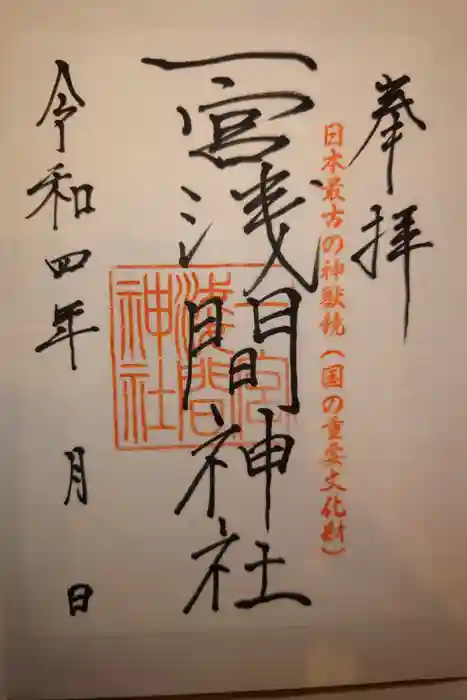 奉拝
日本最古の神獣鏡(国の重要文化財)
一宮浅間神社
一宮
浅間
神社
令和四年 月 日